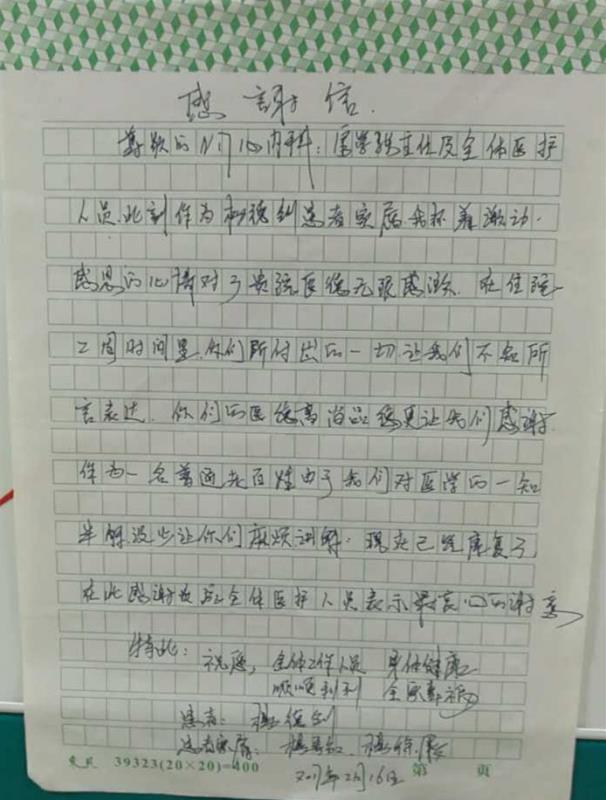 感謝信.
尊敬的 心内科: 主任及全体医护
人员.此刻作为 患者家属我怀着激动.
感恩的心情对了贵院医德无限感激. 在住院
2周时间里.你们所付出的一切.让我们不知所
言表达. 你们的医德高尚品德更让我们感谢.
作为一名普通老百姓由于我们对医学的一知
半解.没少让你们麻烦讲解. 现在已经康复了,
在此感谢 全体医护人员表示最衷心的谢意
特此: 祝愿, 全体工作人员 身体健康
顺顺利利
患者:
患者家属:
39323(20×20)=400 第 页